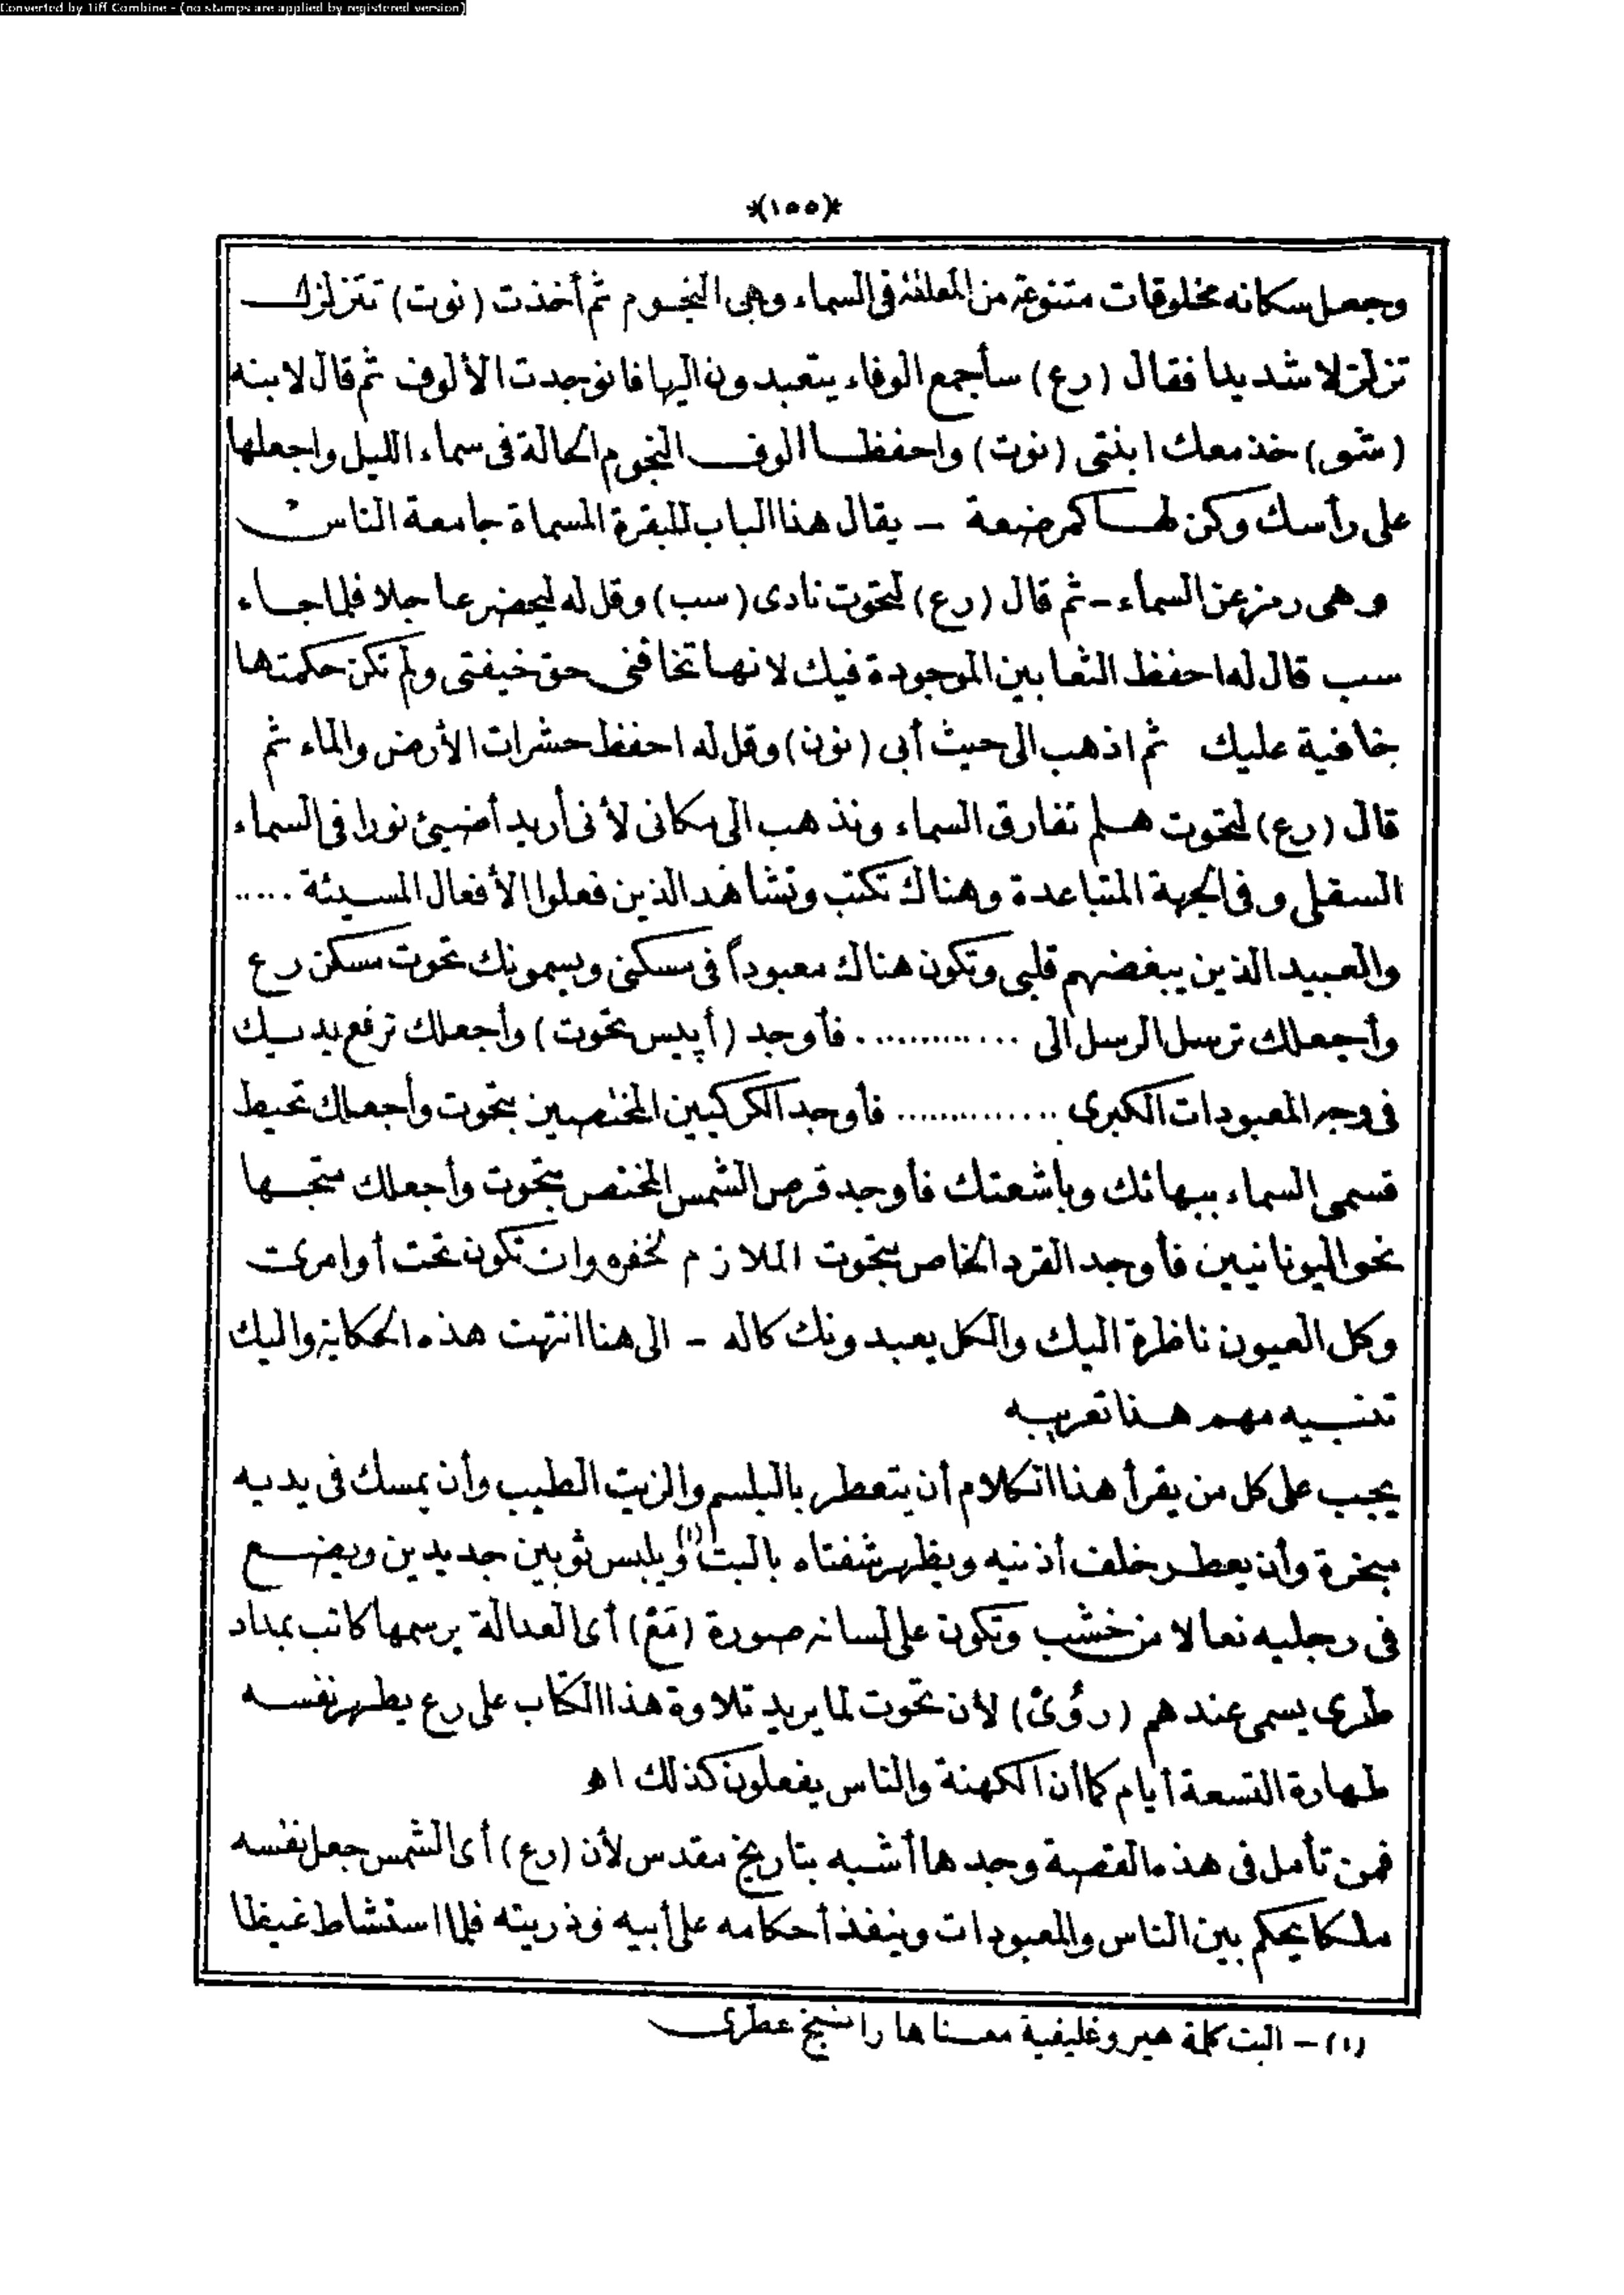 Converted by Tiff Combine - (no stamps are applied by registered version)
*(١٥٥)*
وجعل سكانه مخلوقات متنوعة من المعلقة فى السماء وهى النجوم ثم أخذت (نوت) تتزلزل
تزلزلا شديدا فقال (رع) سأجمع الوفاء يتعبدون اليها فانوجدت الألوف ثم قال لابنه
(شو) خذ معك ابنتى (نوت) واحفظا الوف النجوم الحالة فى سماء الليل واجعلها
على رأسك وكن لها كمرضعة – يقال هذا الباب للبقرة المسماة جامعة الناس
وهى رمز عن السماء – ثم قال (رع) لتحوت نادى (سب) وقل له ليحضر عاجلا فلما جاء
سب قال له احفظ الثعابين الموجودة فيك لانها تخافنى حق خيفتى ولم تكن حكمتها
خافية عليك ثم اذهب الى حيث أبى (نون) وقل له احفظ حشرات الأرض والماء ثم
قال (رع) لتحوت هلم تفارق السماء ونذهب الى مكانى لأنى أريد أضيئ نورا فى السماء
السفلى وفى الجهة المتباعدة وهناك تكتب وتشاهد الذين فعلوا الأفعال المسيئة .....
والعبيد الذين يبغضهم قلبى وتكون هناك معبوداً فى مسكنى ويسمونك تحوت مسكن رع
وأجعلك ترسل الرسل الى ............. فأوجد (أپيس تحوت) وأجعلك ترفع يديك
فى وجه المعبودات الكبرى .............. فأوجد الكركيين المختصين بتحوت وأجعلك تحيط
قسمى السماء ببهائك وباشعتك فأوجد قرص الشمس المختص بتحوت وأجعلك متجها
نحو اليونانيين فأوجد القرد الخاص بتحوت الملازم لخفره وان تكون تحت أوامرى
وكل العيون ناظرة اليك والكل يعبدونك كاله – الى هنا انتهت هذه الحكاية واليك
تنبيه مهم هذا تعريبه
يجب على كل من يقرأ هذا الكلام أن يتعطر بالبلسم والزيت الطيب وأن يمسك فى يديه
مبخرة وأن يعطر خلف أذنيه ويطهر شفتاه بالبت(١) ويلبس ثوبين جديدين ويضع
فى رجليه نعالا من خشب وتكون على لسانه صورة (مَعْ) أى العدالة يرسمها كاتب بمداد
طرى يسمى عندهم (رؤى) لأن تحوت لما يريد تلاوة هذا الكتاب على رع يطهر نفسه
طهارة التسعة أيام كما أن الكهنة والناس يفعلون كذلك اه
فمن تأمل فى هذه القصة وجدها أشبه بتاريخ مقدس لأن (رع) أى الشمس جعل نفسه
ملكا يحكم بين الناس والمعبودات وينفذ أحكامه على أبيه وذريته فلما استشاط غيظا
(١) – البت كلمة هيروغليفية معناها راتنج عطرى